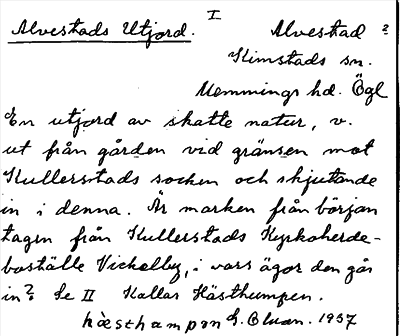 I
Alvestads Utjord. Alvestad 2
Kimstads sn.
Memmings hd. Ögl
En utjord av skatte natur, v.
ut från gården vid gränsen mot
Kullerstads socken och skjutande
in i denna. Är marken från början
tagen från Kullerstads Kyrkoherde-
boställe Vickelby, i vars ägor den går
in? Se II Kallas Hästhumpen.
hàsthampan G. Bluan. 1937